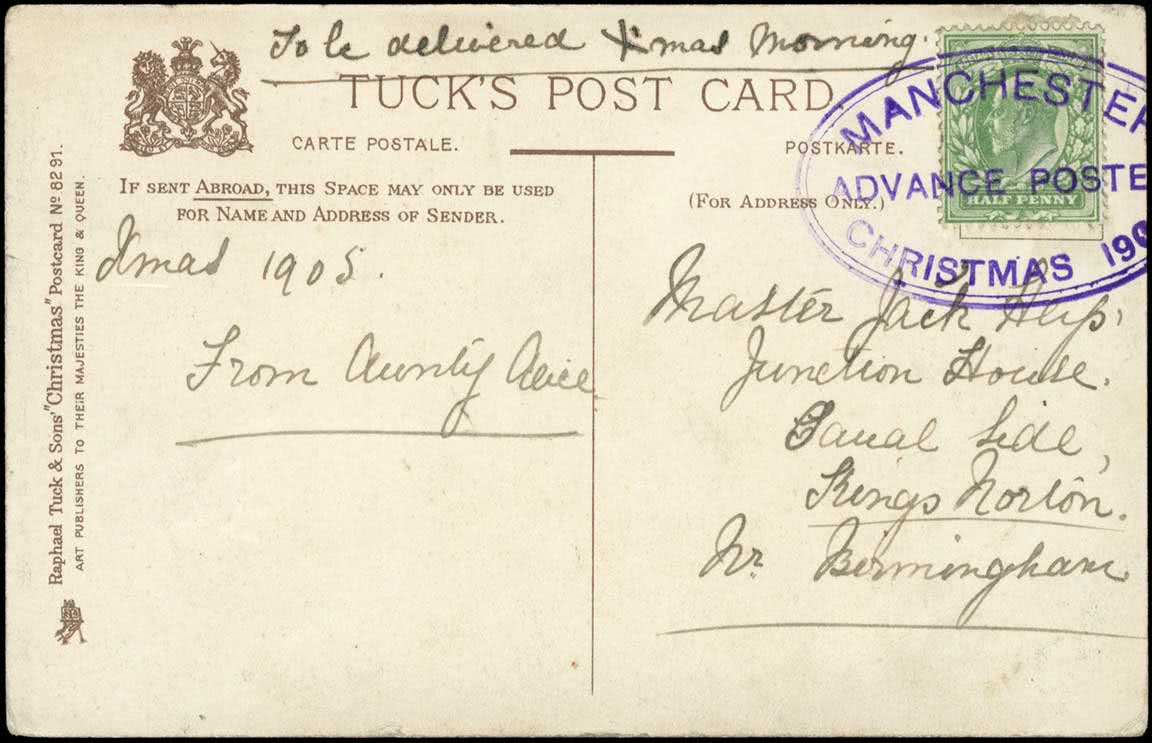 To be delivered Xmas Morning.
TUCK'S POST CARD.
CARTE POSTALE.
POSTKARTE.
IF SENT ABROAD, THIS SPACE MAY ONLY BE USED
FOR NAME AND ADDRESS OF SENDER.
(FOR ADDRESS ONLY.)
MANCHESTER
ADVANCE POSTE
CHRISTMAS 190
HALF PENNY
Xmas 1905.
From Aunty Alice
Master Jack
Junction House.
Canal Side,
Kings Norton.
Nr. Birmingham
Raphael Tuck & Sons' "Christmas" Postcard No 8291.
ART PUBLISHERS TO THEIR MAJESTIES THE KING & QUEEN.